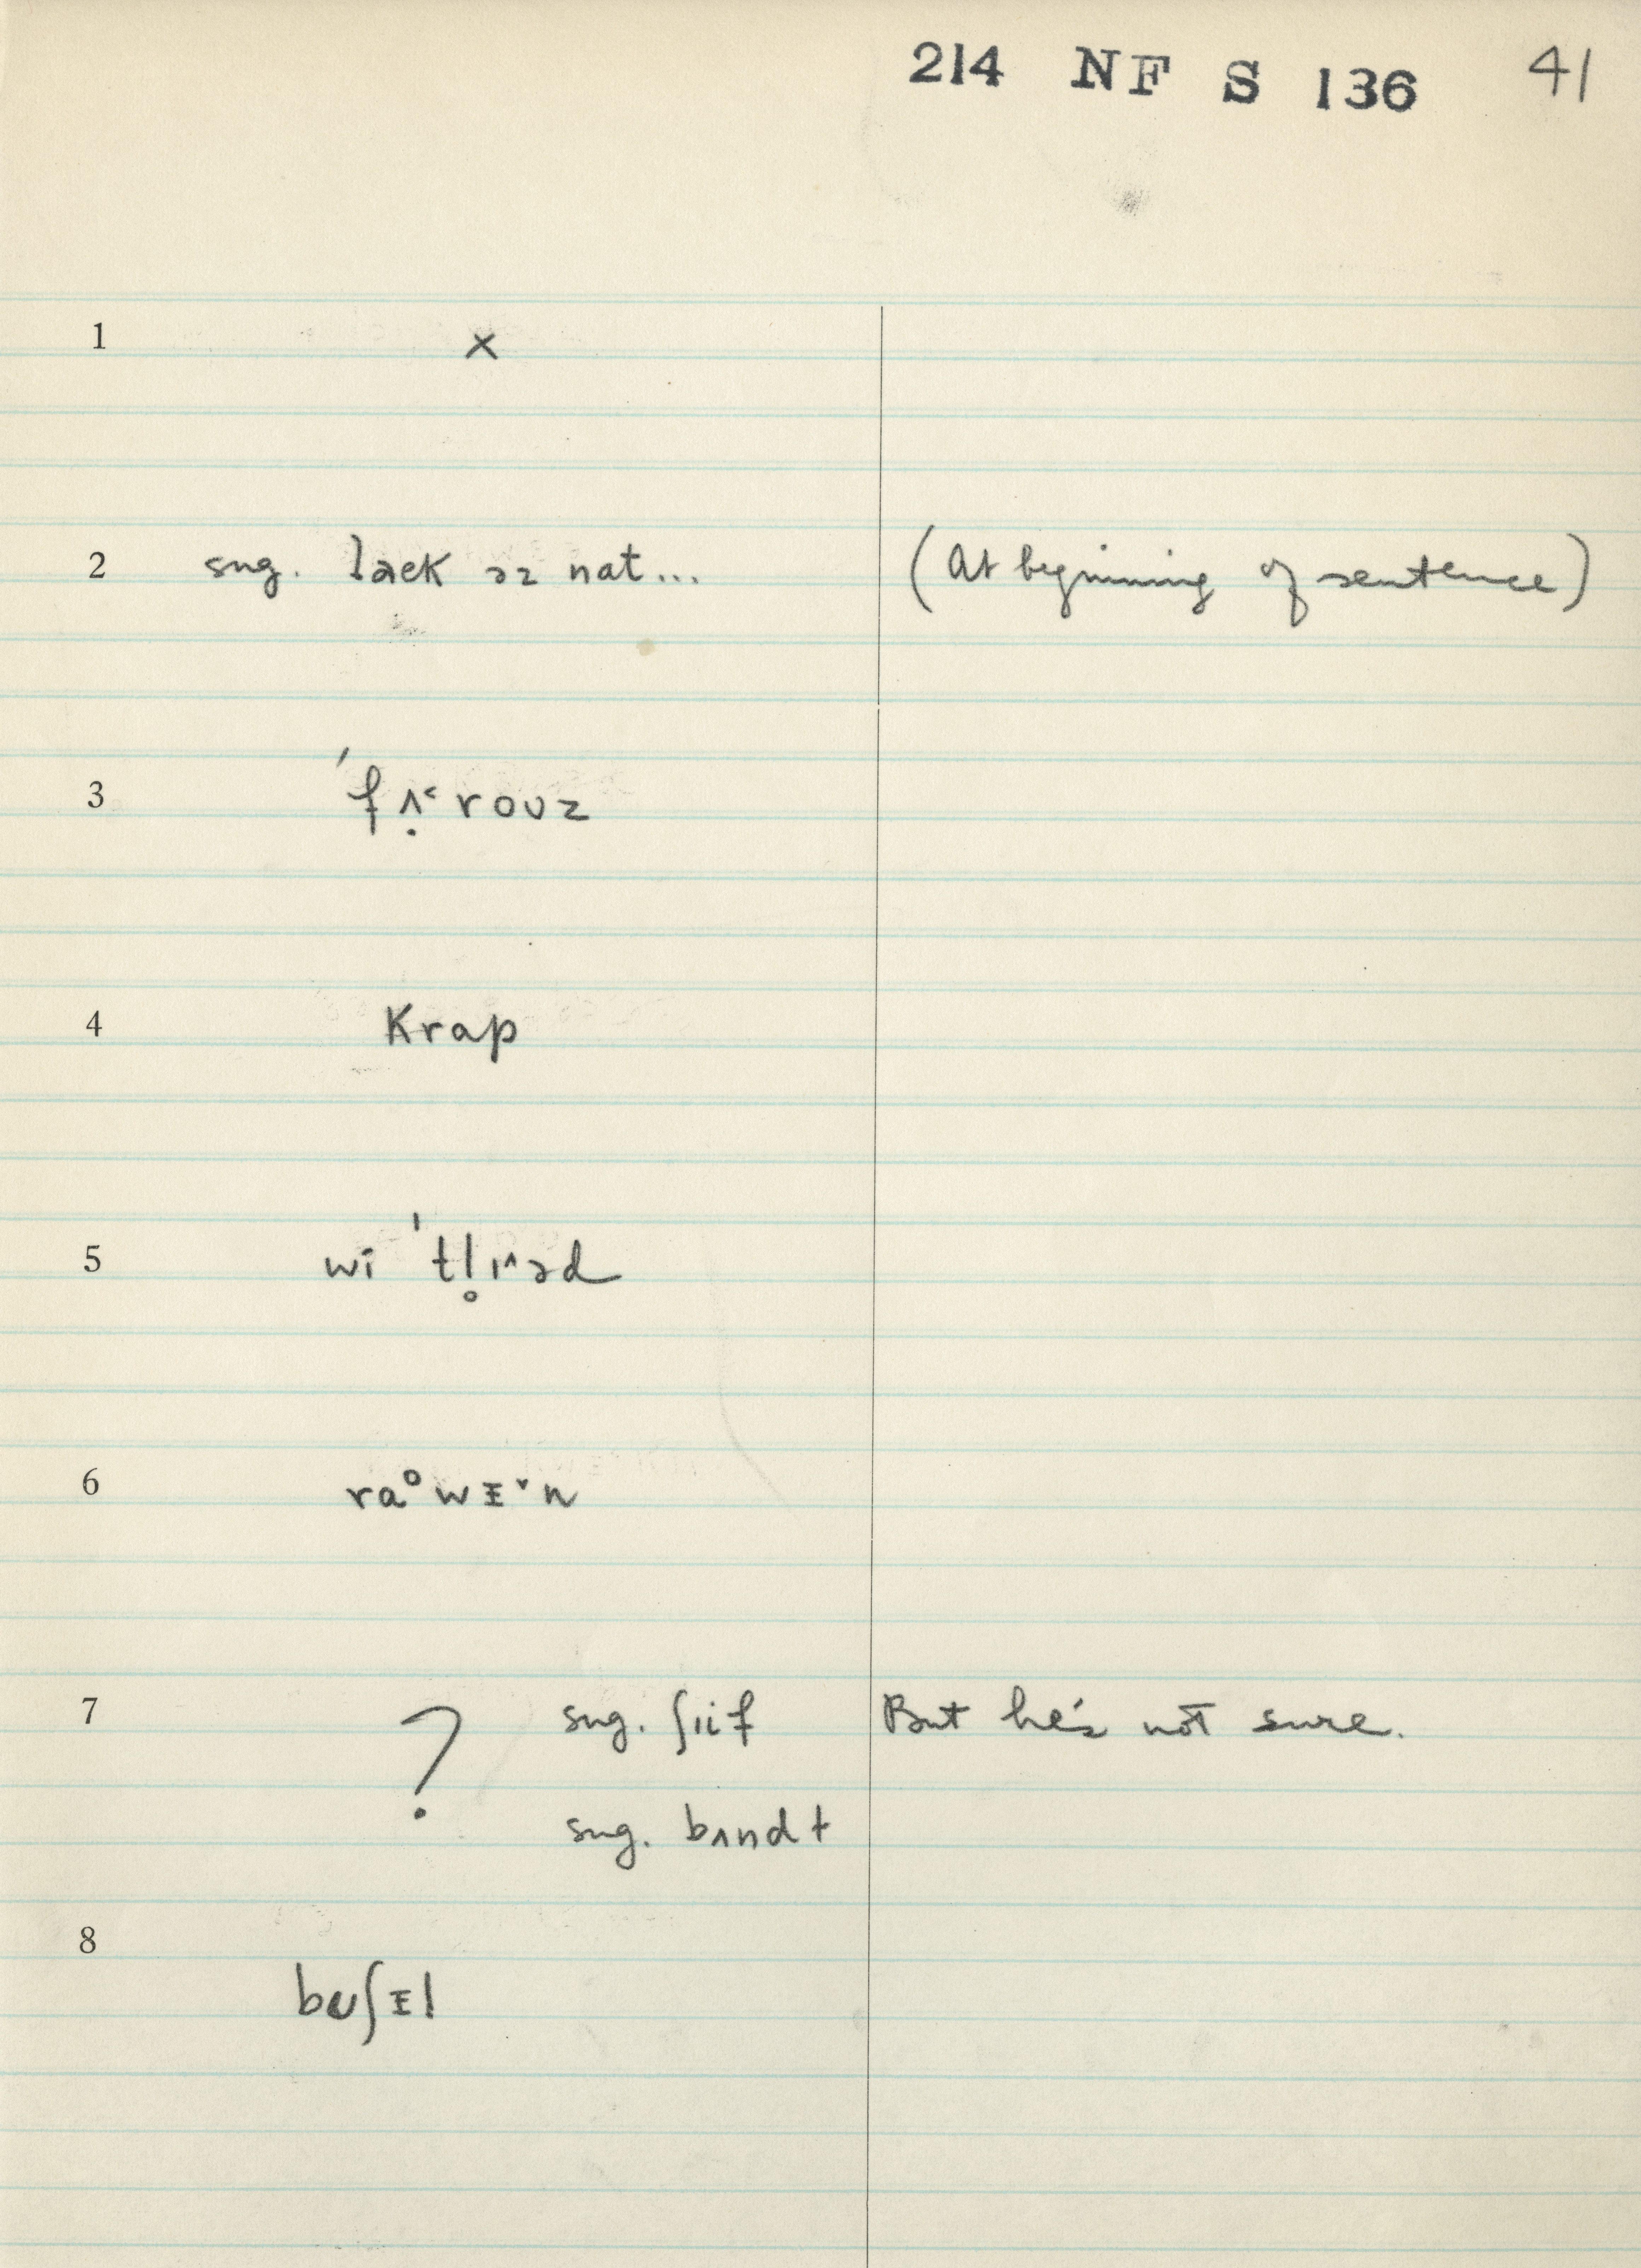 214 NF S 136 41
1 ×
2 sug. laek əz nat... (At beginning of sentence)
3 ˈfʌ̣˂rouz
4 Krap
5 wi ˈtl̥ɪ˄əd
6 ra°wᵻ˅n
7 ? sug. ʃɪif But he's not sure.
sug. bʌndɫ
8 buʃᵻl